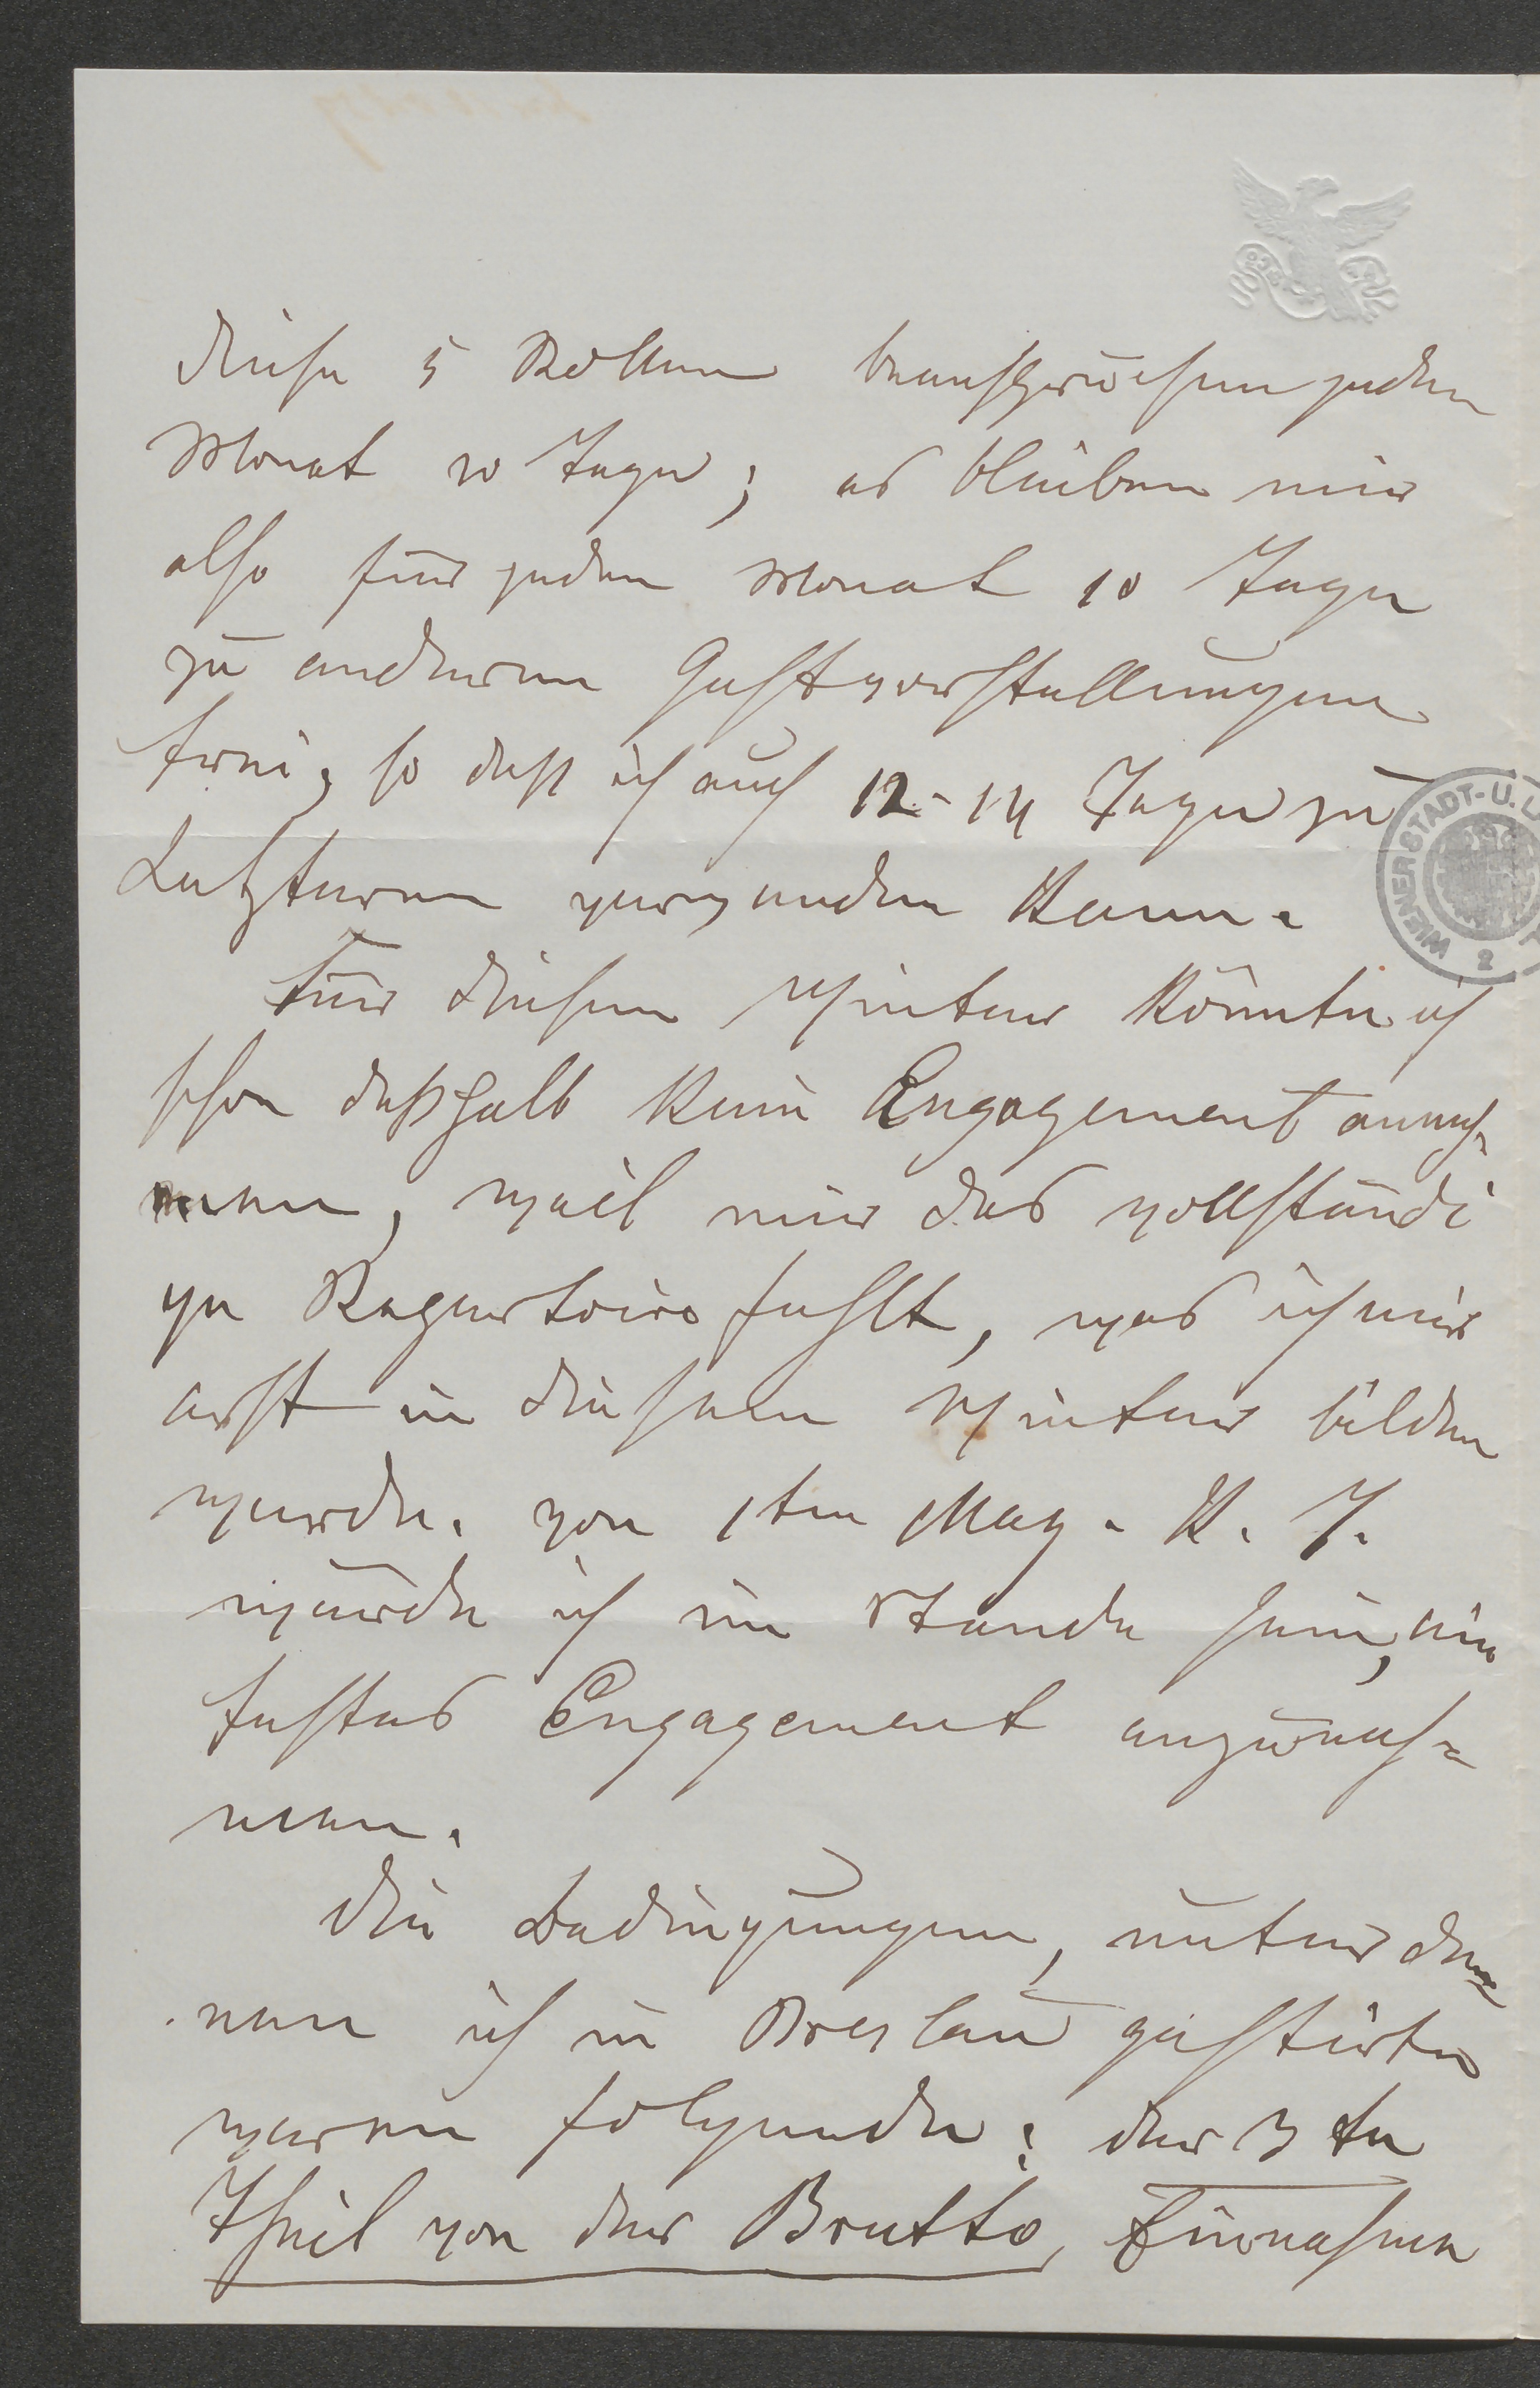 diese 5 Rollen beanspruchen jeden
Monat 20 Tage; es bleiben mir
also für jeden Monat 10 Tage
zu anderen Gastvorstellungen
frei, so daß ich auch 12-14 Tage zu
Letzteren verwenden kann.
Für diesen Winter könnte ich
schon deßhalb kein Engagement anneh-
men, weil mir das vollständi
ge Repertoire fehlt, was ich mir
erst in diesem Winter bilden
werde. Von 1ten May. K. J.
würde ich im Stande sein, ein
festes Engagement anzuneh=
men.
Die Bedingungen, unter de=
nen ich in Breslau gastirte
waren folgende: der 3te
Theil von der Brutto, Einnahme
WIENER STADT-U.L
2